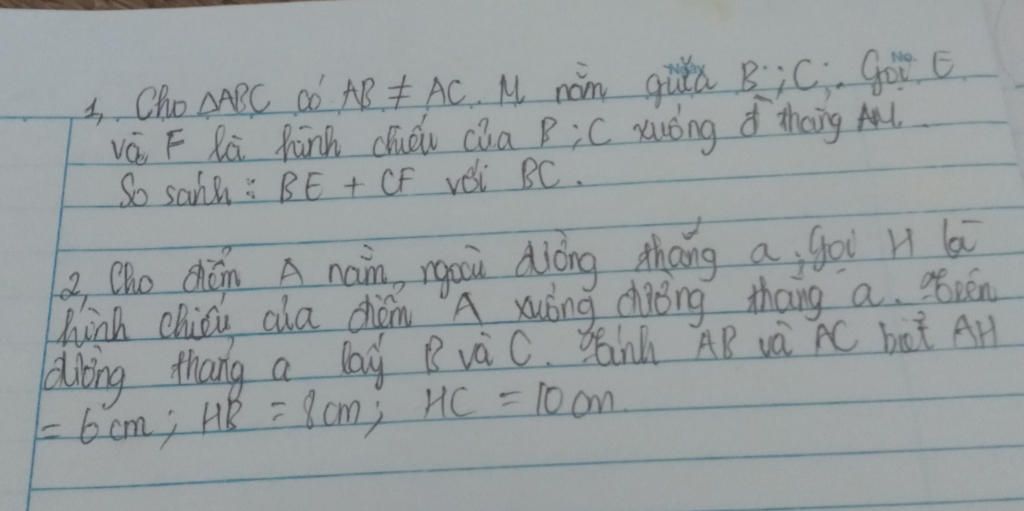 1, Cho △ABC có AB ≠ AC. M nằm giữa B; C;. Gọi E
và F là hình chiếu của B; C xuống đ thẳng AM.
So sánh: BE + CF với BC.
2, Cho điểm A nằm ngoài đường thẳng a, gọi H là
hình chiếu của điểm A xuống đường thẳng a. Trên
đường thẳng a lấy B và C. Tính AB và AC biết AH
= 6cm; HB = 8cm; HC = 10cm.